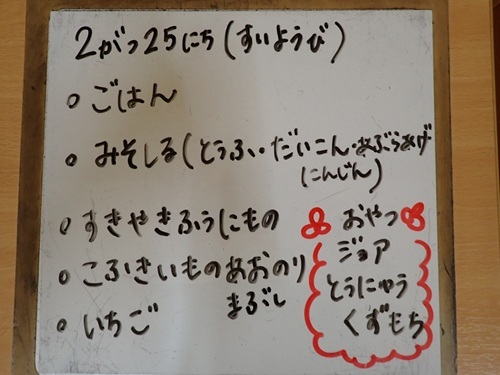 2がつ25にち(すいようび)
○ ごはん
○ みそしる(とうふ・だいこん・あぶらあげ
にんじん)
○ すきやきふうにもの
○ こふきいものあおのり
まるごし
○ いちご
おやつ
ジョア
とうにゅう
くずもち